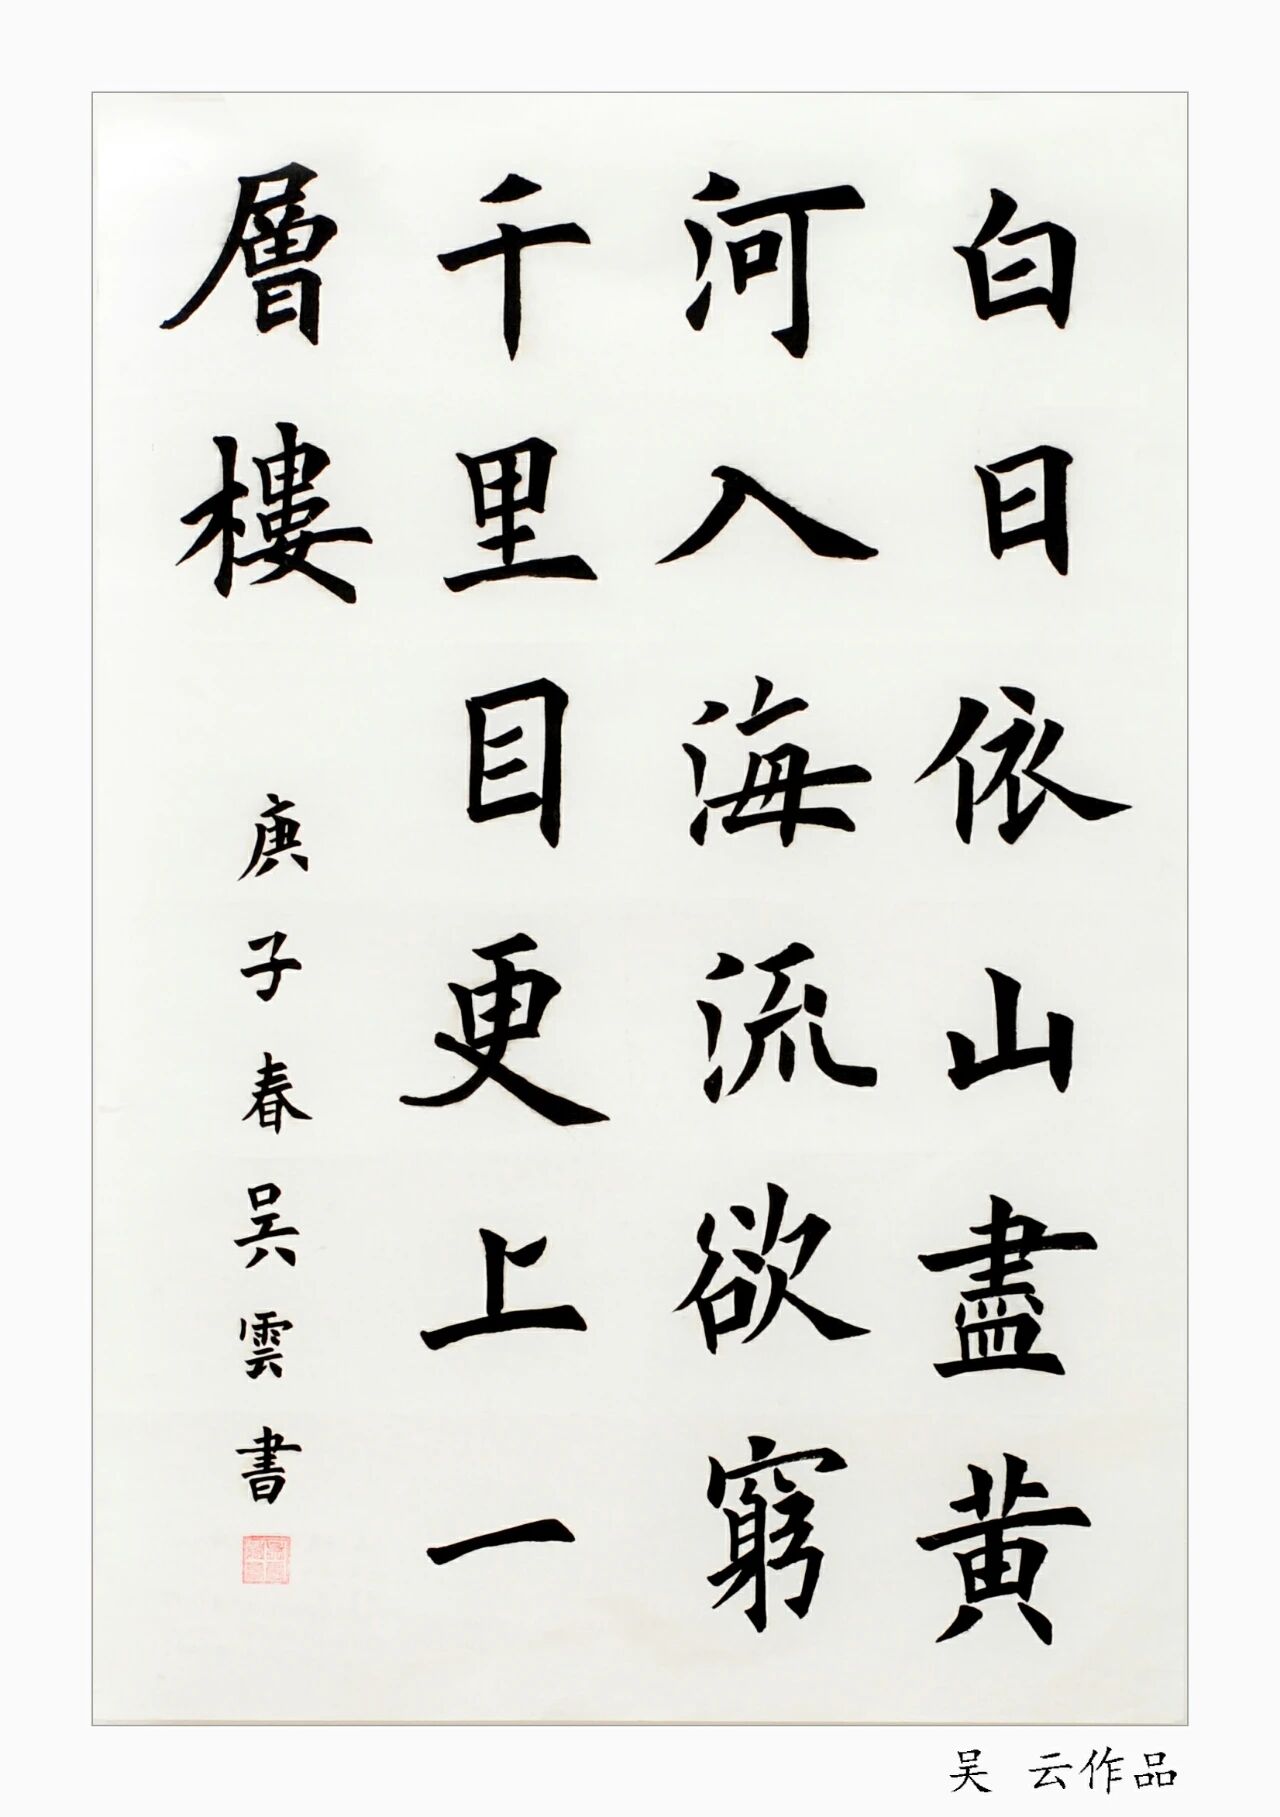 白日依山盡黄
河入海流欲窮
千里目更上一
層樓
庚子春吴雲書
吴 云作品